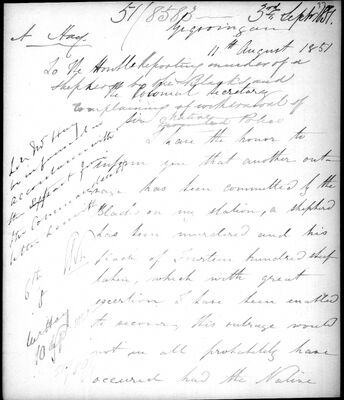 51/8583
3rd Septr 1851.
A Hay
11th August 1851
To The Honble
The Colonial Secretary
Reporting murder of a
Shepherd by the Blacks and
complaining of withdrawal of
Native Police
Sir
I have the honor to
inform you that another out-
rage has been committed by the
Blacks on my station, a shepherd
has been murdered and his
flock of Fourteen hundred sheep
taken, which with great
exertion I have been enabled
to recover, this outrage would
not in all probability have
occured had the Native
Let Mr Hay
be informed in
accordance with
the Commandant
letter herewith
6th
10 Sept